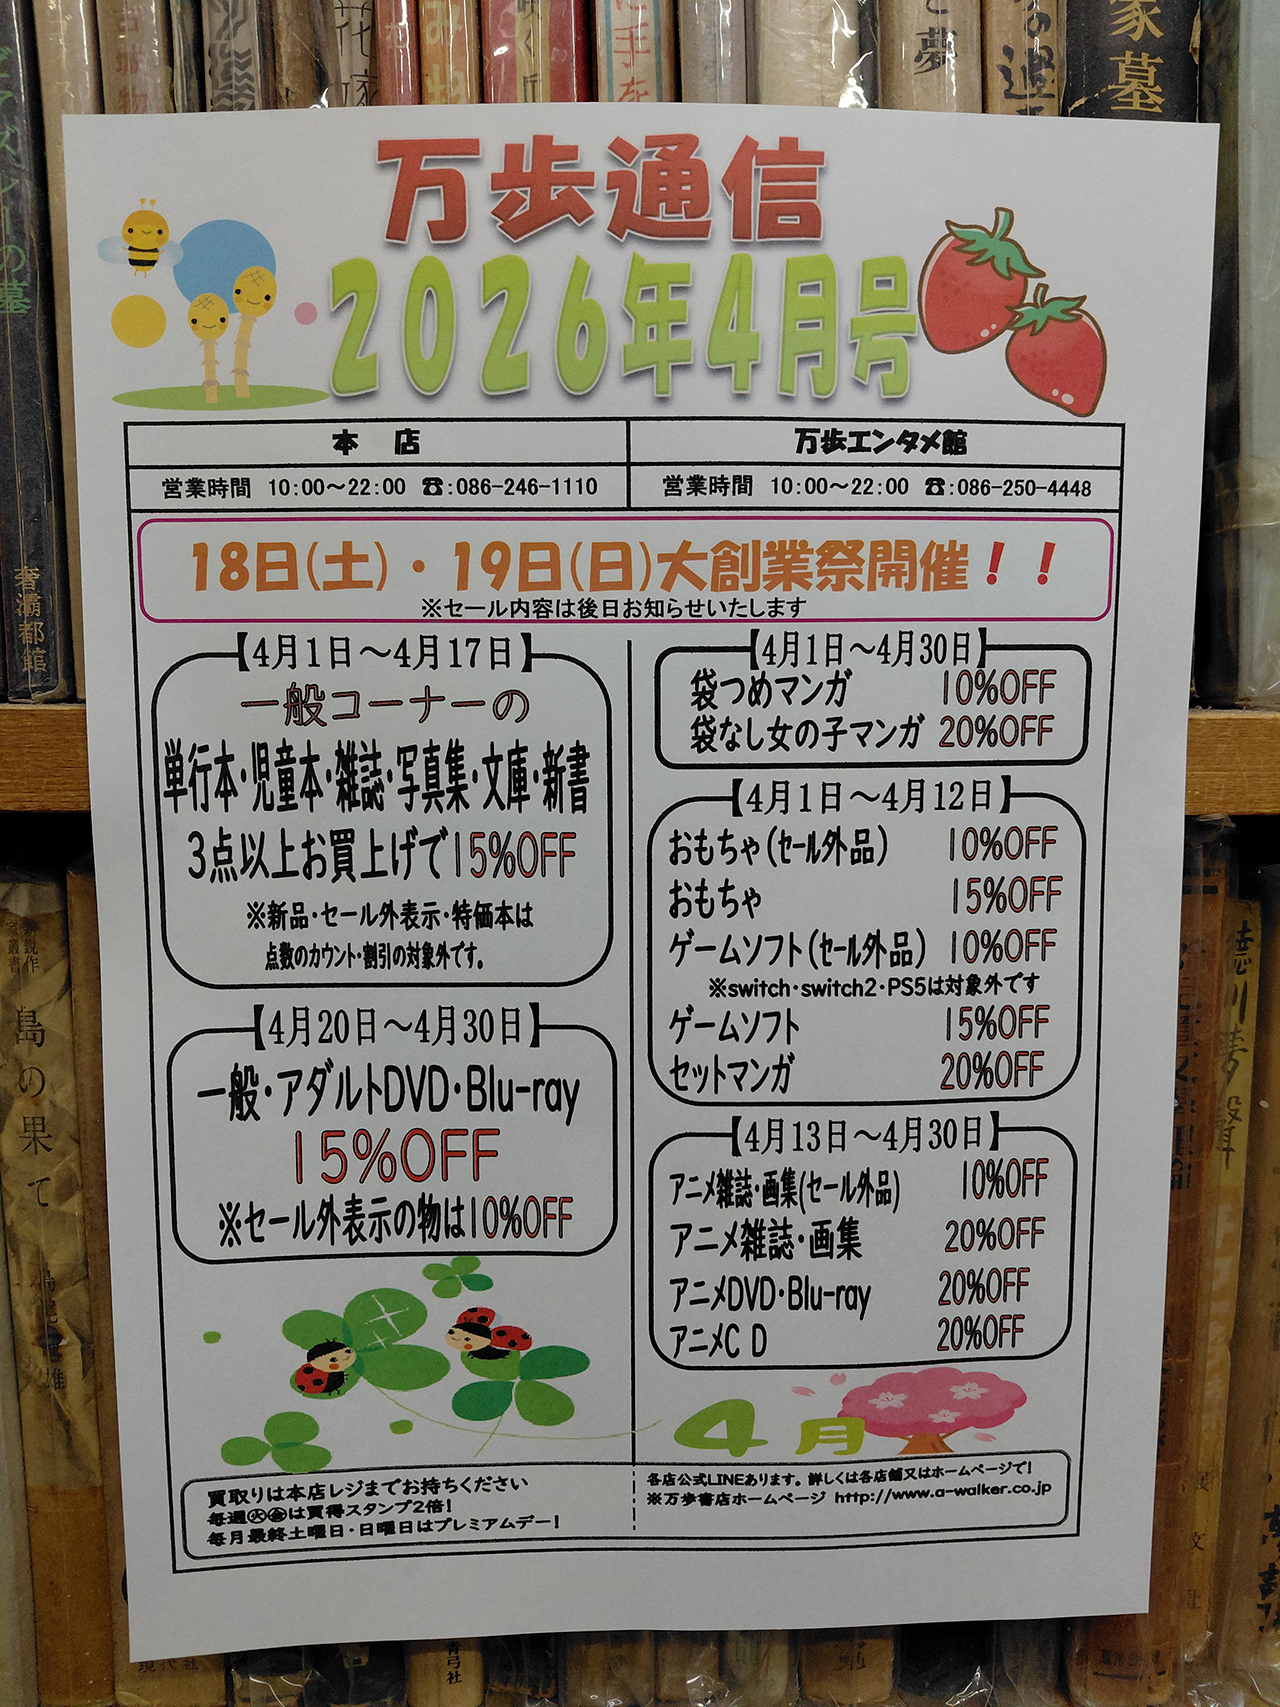 万歩通信
2026年4月号
本 店
営業時間 10:00～22:00 ☎:086-246-1110
万歩エンタメ館
営業時間 10:00～22:00 ☎:086-250-4448
18日(土)・19日(日)大創業祭開催！！
※セール内容は後日お知らせいたします
【4月1日～4月17日】
一般コーナーの
単行本・児童本・雑誌・写真集・文庫・新書
3点以上お買上げで15%OFF
※新品・セール外表示・特価本は
点数のカウント・割引の対象外です。
【4月20日～4月30日】
一般・アダルトDVD・Blu-ray
15%OFF
※セール外表示の物は10%OFF
【4月1日～4月30日】
袋つめマンガ 10%OFF
袋なし女の子マンガ 20%OFF
【4月1日～4月12日】
おもちゃ(セール外品) 10%OFF
おもちゃ 15%OFF
ゲームソフト(セール外品) 10%OFF
※switch・switch2・PS5は対象外です
ゲームソフト 15%OFF
セットマンガ 20%OFF
【4月13日～4月30日】
アニメ雑誌・画集(セール外品) 10%OFF
アニメ雑誌・画集 20%OFF
アニメDVD・Blu-ray 20%OFF
アニメCD 20%OFF
4月
買取りは本店レジまでお持ちください
毎週㊋㊎は買得スタンプ2倍！
毎月最終土曜日・日曜日はプレミアムデー！
各店公式LINEあります。詳しくは各店舗又はホームページで！
※万歩書店ホームページ http://www.a-walker.co.jp
家墓
と夢
奢灞都館
島の果て
現代社
青弓社